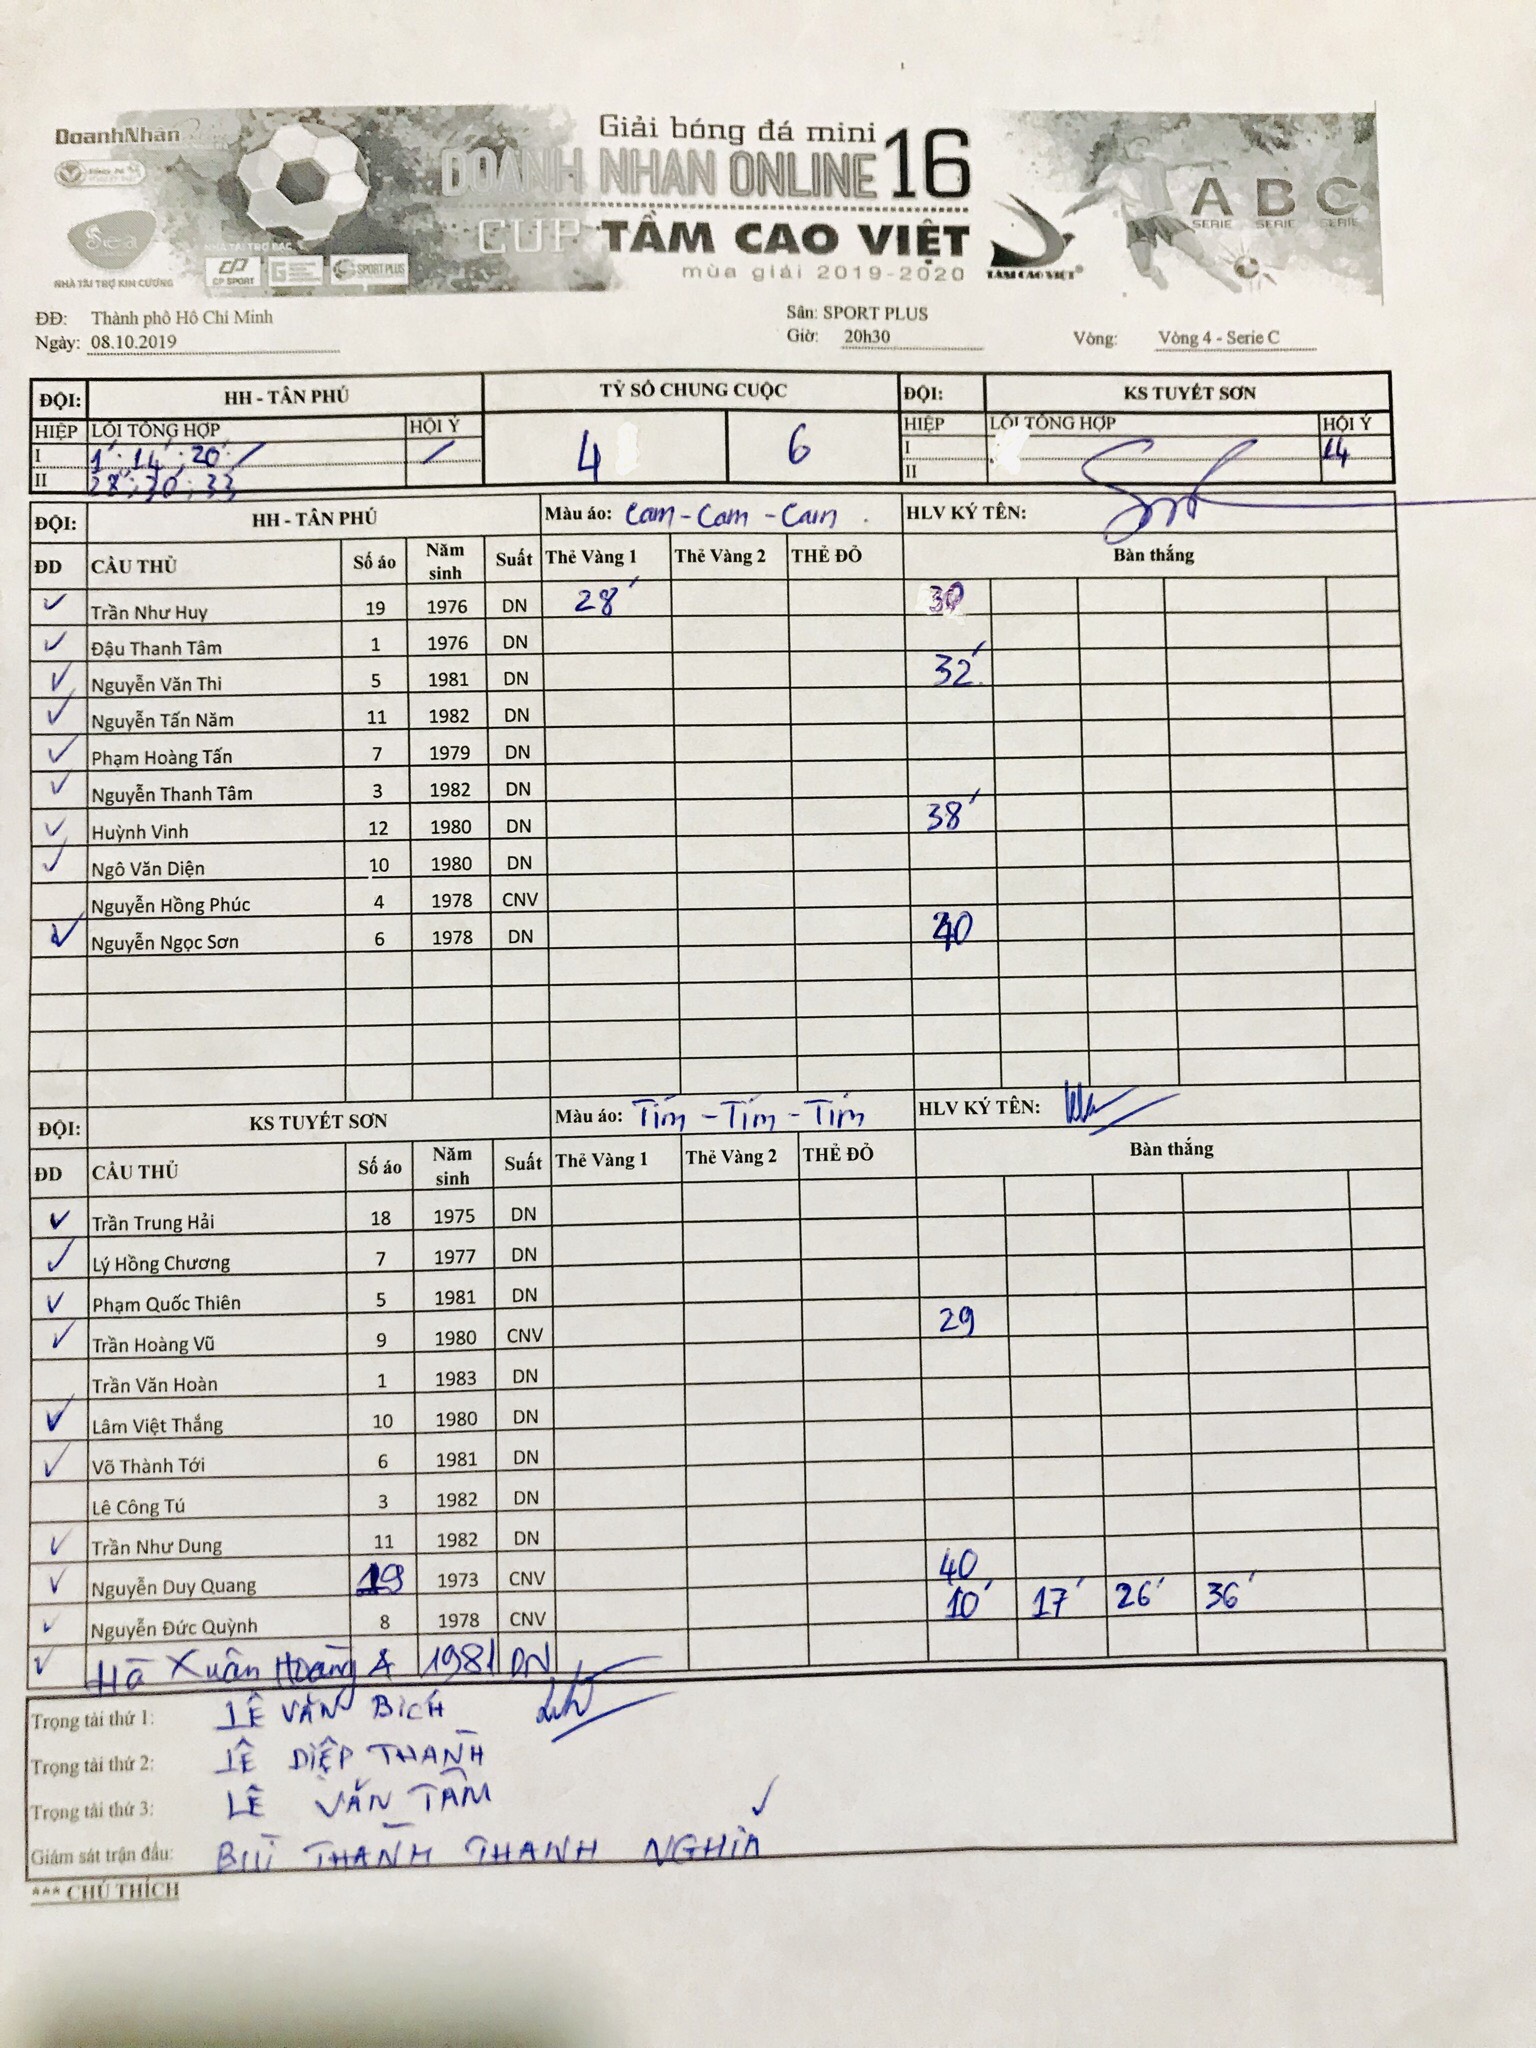 DoanhNhân
Giải bóng đá mini
DOANH NHAN ONLINE 16
CUP TẦM CAO VIỆT
mùa giải 2019-2020
Sea
NHÀ TÀI TRỢ KIM CƯƠNG
NHÀ TÀI TRỢ BẠC
CP SPORT
SPORT PLUS
TẦM CAO VIỆT®
A B C
SERIE SERIE SERIE
ĐĐ: Thành phô Hô Chí Minh Sân: SPORT PLUS
Ngày: 08.10.2019 Giờ: 20h30 Vòng: Vòng 4 - Serie C
ĐỘI: HH - TÂN PHÚ TỶ SỐ CHUNG CUỘC ĐỘI: KS TUYẾT SƠN
HIỆP LỖI TỔNG HỢP HỘI Ý 4 6 HIỆP LỖI TỔNG HỢP HỘI Ý
I 1'; 14'; 20' / I 14
II 28'; 30'; 33 II
ĐỘI: HH - TÂN PHÚ Màu áo: Cam - Cam - Cam HLV KÝ TÊN:
ĐD CẦU THỦ Số áo Năm sinh Suất Thẻ Vàng 1 Thẻ Vàng 2 THẺ ĐỎ Bàn thắng
✓ Trần Như Huy 19 1976 DN 28'
✓ Đậu Thanh Tâm 1 1976 DN
✓ Nguyễn Văn Thi 5 1981 DN 32'
✓ Nguyễn Tấn Năm 11 1982 DN
✓ Phạm Hoàng Tấn 7 1979 DN
✓ Nguyễn Thanh Tâm 3 1982 DN
✓ Huỳnh Vinh 12 1980 DN 38'
✓ Ngô Văn Diện 10 1980 DN
Nguyễn Hồng Phúc 4 1978 CNV
✓ Nguyễn Ngọc Sơn 6 1978 DN 40
ĐỘI: KS TUYẾT SƠN Màu áo: Tím - Tím - Tím HLV KÝ TÊN:
ĐD CẦU THỦ Số áo Năm sinh Suất Thẻ Vàng 1 Thẻ Vàng 2 THẺ ĐỎ Bàn thắng
✓ Trần Trung Hải 18 1975 DN
✓ Lý Hồng Chương 7 1977 DN
✓ Phạm Quốc Thiên 5 1981 DN
✓ Trần Hoàng Vũ 9 1980 CNV 29
Trần Văn Hoàn 1 1983 DN
✓ Lâm Việt Thắng 10 1980 DN
✓ Võ Thành Tới 6 1981 DN
Lê Công Tú 3 1982 DN
✓ Trần Như Dung 11 1982 DN
✓ Nguyễn Duy Quang 19 1973 CNV 40
✓ Nguyễn Đức Quỳnh 8 1978 CNV 10' 17' 26' 36'
✓ Hà Xuân Hoàng 1981 DN
Trọng tài thứ 1: LÊ VĂN BÍCH
Trọng tài thứ 2: LÊ DIỆP THANH
Trọng tài thứ 3: LÊ VĂN TÂM
Giám sát trận đấu: BÙI THANH THANH NGHĨA ✓
*** CHÚ THÍCH